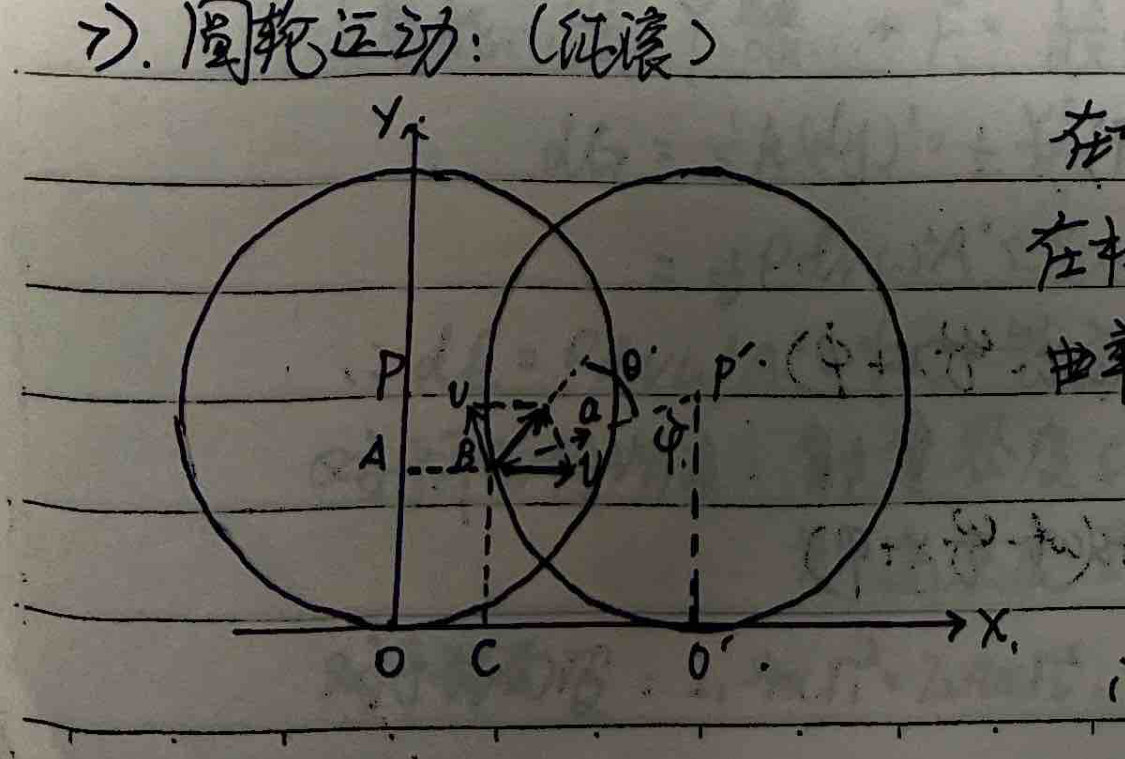 7). 圆轮运动:(纯滚)
Y
在
在
P
θ
P′
曲率
υ
a
φ
A
B
υ
X
O
C
O′